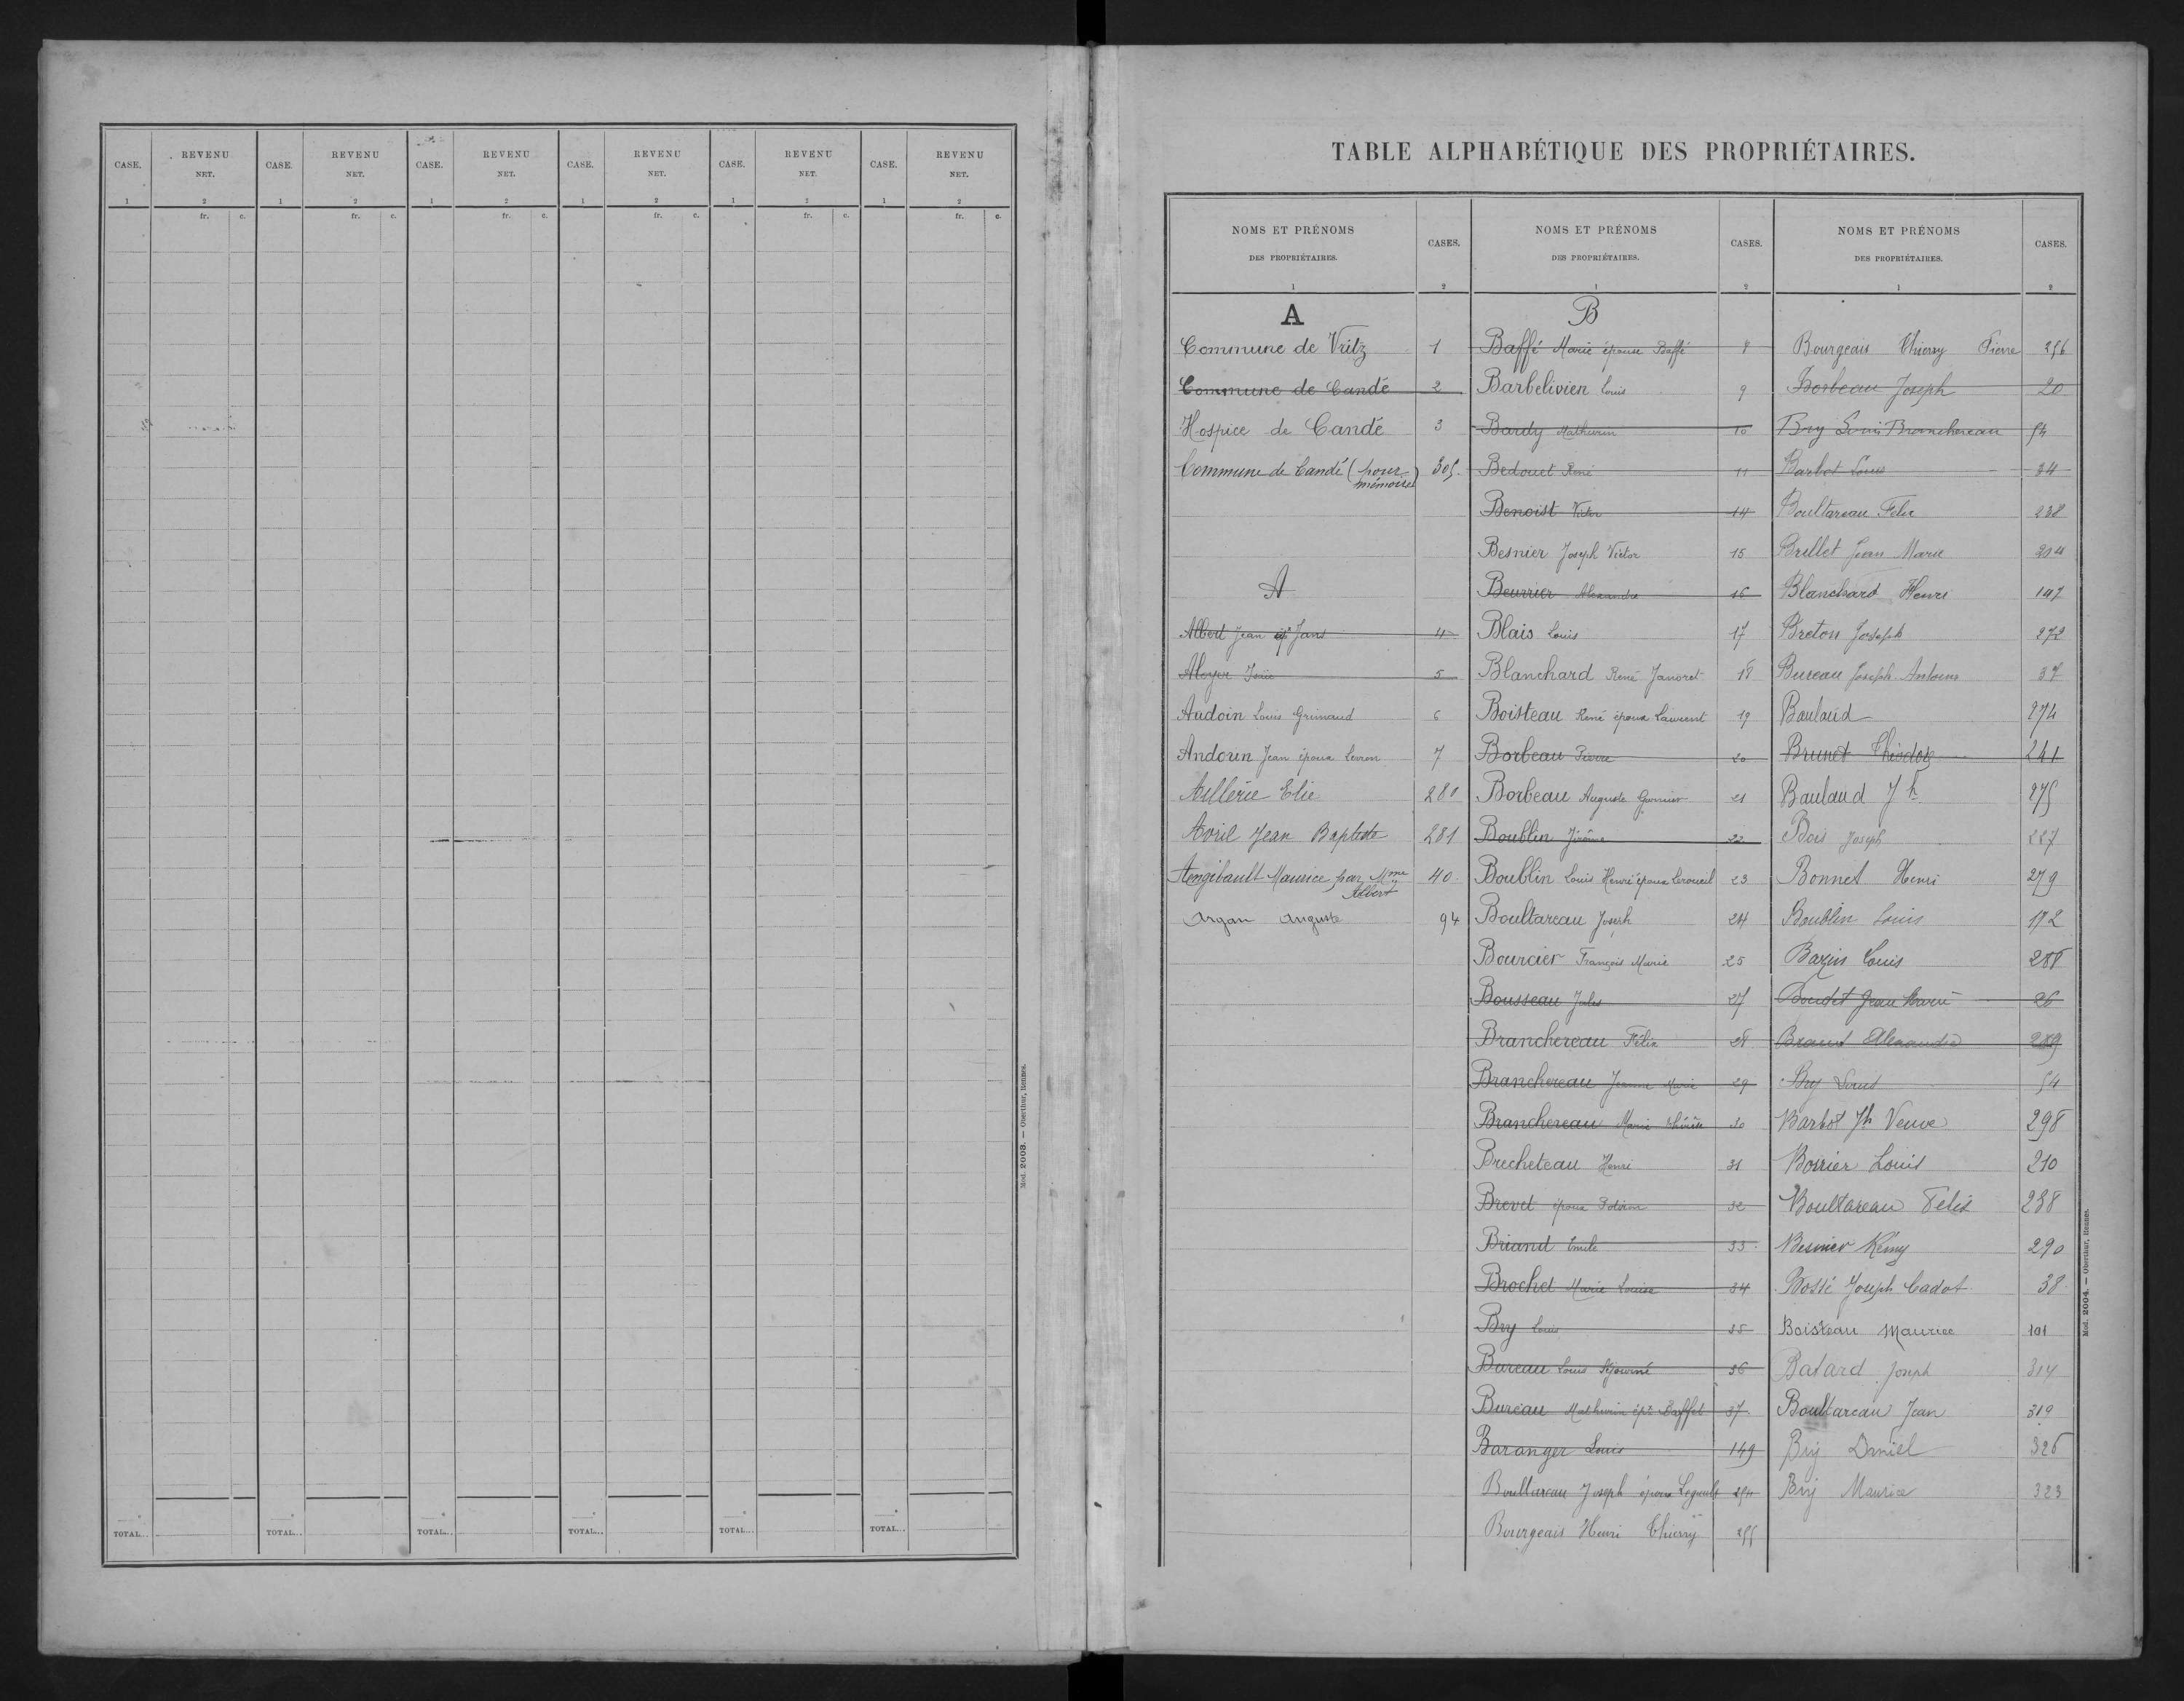 CASE. REVENU NET. CASE. REVENU NET. CASE. REVENU NET. CASE. REVENU NET. CASE. REVENU NET. CASE. REVENU NET.
1 2 1 2 1 2 1 2 1 2 1 2
fr. c. fr. c. fr. c. fr. c. fr. c. fr. c.
TOTAL... TOTAL... TOTAL... TOTAL... TOTAL... TOTAL...
Mod. 2003. — Oberthur, Rennes.
TABLE ALPHABÉTIQUE DES PROPRIÉTAIRES.
NOMS ET PRÉNOMS DES PROPRIÉTAIRES. CASES. NOMS ET PRÉNOMS DES PROPRIÉTAIRES. CASES. NOMS ET PRÉNOMS DES PROPRIÉTAIRES. CASES.
1 2 1 2 1 2
A
Commune de Vritz 1
Commune de Candé 2
Hospice de Candé 3
Commune de Candé (pour mémoire) 305
A
Albert Jean ép. Jans 4
Aloyer 5
Audoin Louis Grimaud 6
Andouin Jean époux Levron 7
Aillerie Elie 280
Avril Jean Baptiste 281
Angibault Maurice par Mme Albert 40
Argan Auguste 94
B
Baffé Marie épouse Baffé 8
Barbelivien Louis 9
Bardy Mathurin 10
Bedouet René 11
Benoist Victor 14
Besnier Joseph Victor 15
Beurrier Alexandre 16
Blais Louis 17
Blanchard René Janoret 18
Boisteau René époux Laurent 19
Borbeau Pierre 20
Borbeau Auguste Garnier 21
Boublin Jérôme 22
Boublin Louis Henri époux Leroueil 23
Boultareau Joseph 24
Bourcier François Marie 25
Bousseau Jules 27
Branchereau Félix 28
Branchereau Jeanne Marie 29
Branchereau Marie Thérèse 30
Brecheteau Henri 31
Brevet époux Potiron 32
Briand Emile 33
Brochet Marie Louise 34
Bry Louis 35
Bureau Louis Séjourné 36
Bureau Mathurin épx Baffet 37
Baranger Louis 149
Boultareau Joseph époux Legault 254
Bourgeais Henri Thierry 255
Bourgeais Thierry Pierre 256
Borbeau Joseph 20
Bry Louis Branchereau 54
Barbot Louis 34
Boultareau Félix 238
Brillet Jean Marie 204
Blanchard Henri 197
Breton Joseph 272
Bureau Joseph Antoine 37
Baulaud 274
Brunet Théodore 241
Baulaud Jh 275
Bois Joseph 227
Bonnet Henri 279
Boublin Louis 172
Bazin Louis 288
Boudet Jean Marie 26
Braud Alexandre 289
Bry Louis 54
Barbot Jh Veuve 298
Bossier Louis 210
Boultareau Félix 238
Besnier Rémy 290
Bossé Joseph Cadot 38
Boisteau Maurice 101
Batard Joseph 314
Boultareau Jean 319
Bry Daniel 326
Bry Maurice 323
Mod. 2004. — Oberthur, Rennes.